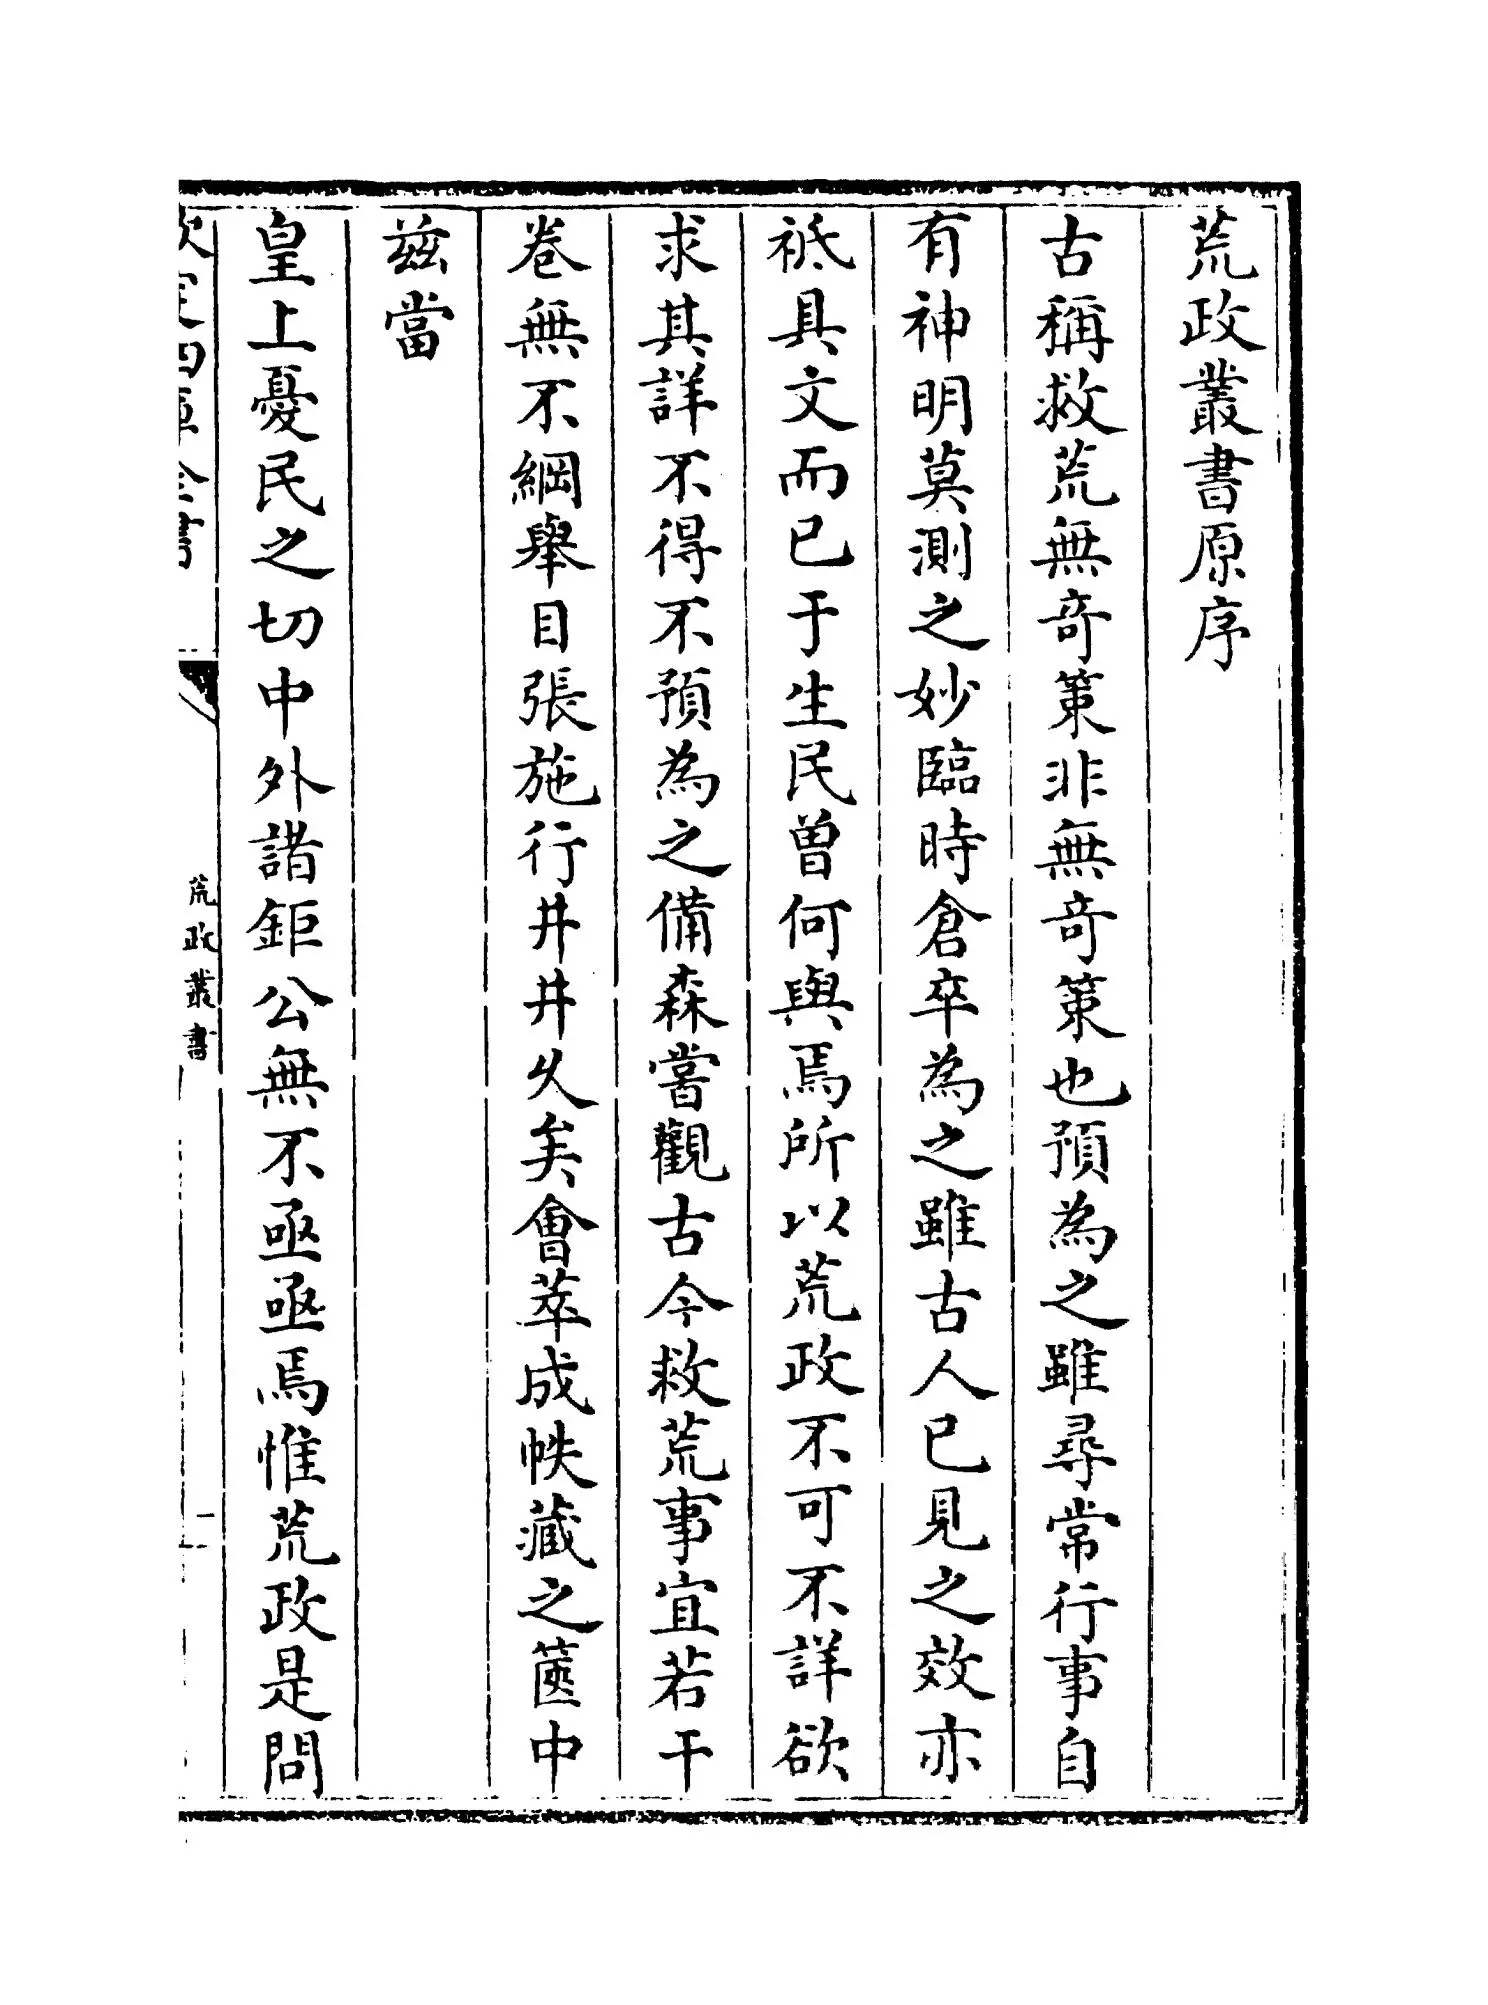 荒政叢書原序
古稱救荒無竒策非無竒策也預為之雖尋常行事自
有神明莫測之妙臨時倉卒為之雖古人已見之效亦
祗具文而已于生民曾何與焉所以荒政不可不詳欲
求其詳不得不預為之備森嘗觀古今救荒事宜若干
卷無不綱舉目張施行井井久矣會萃成帙藏之篋中
兹當
皇上憂民之切中外諸鉅公無不亟亟焉惟荒政是問
欽定四庫全書
荒政叢書
一